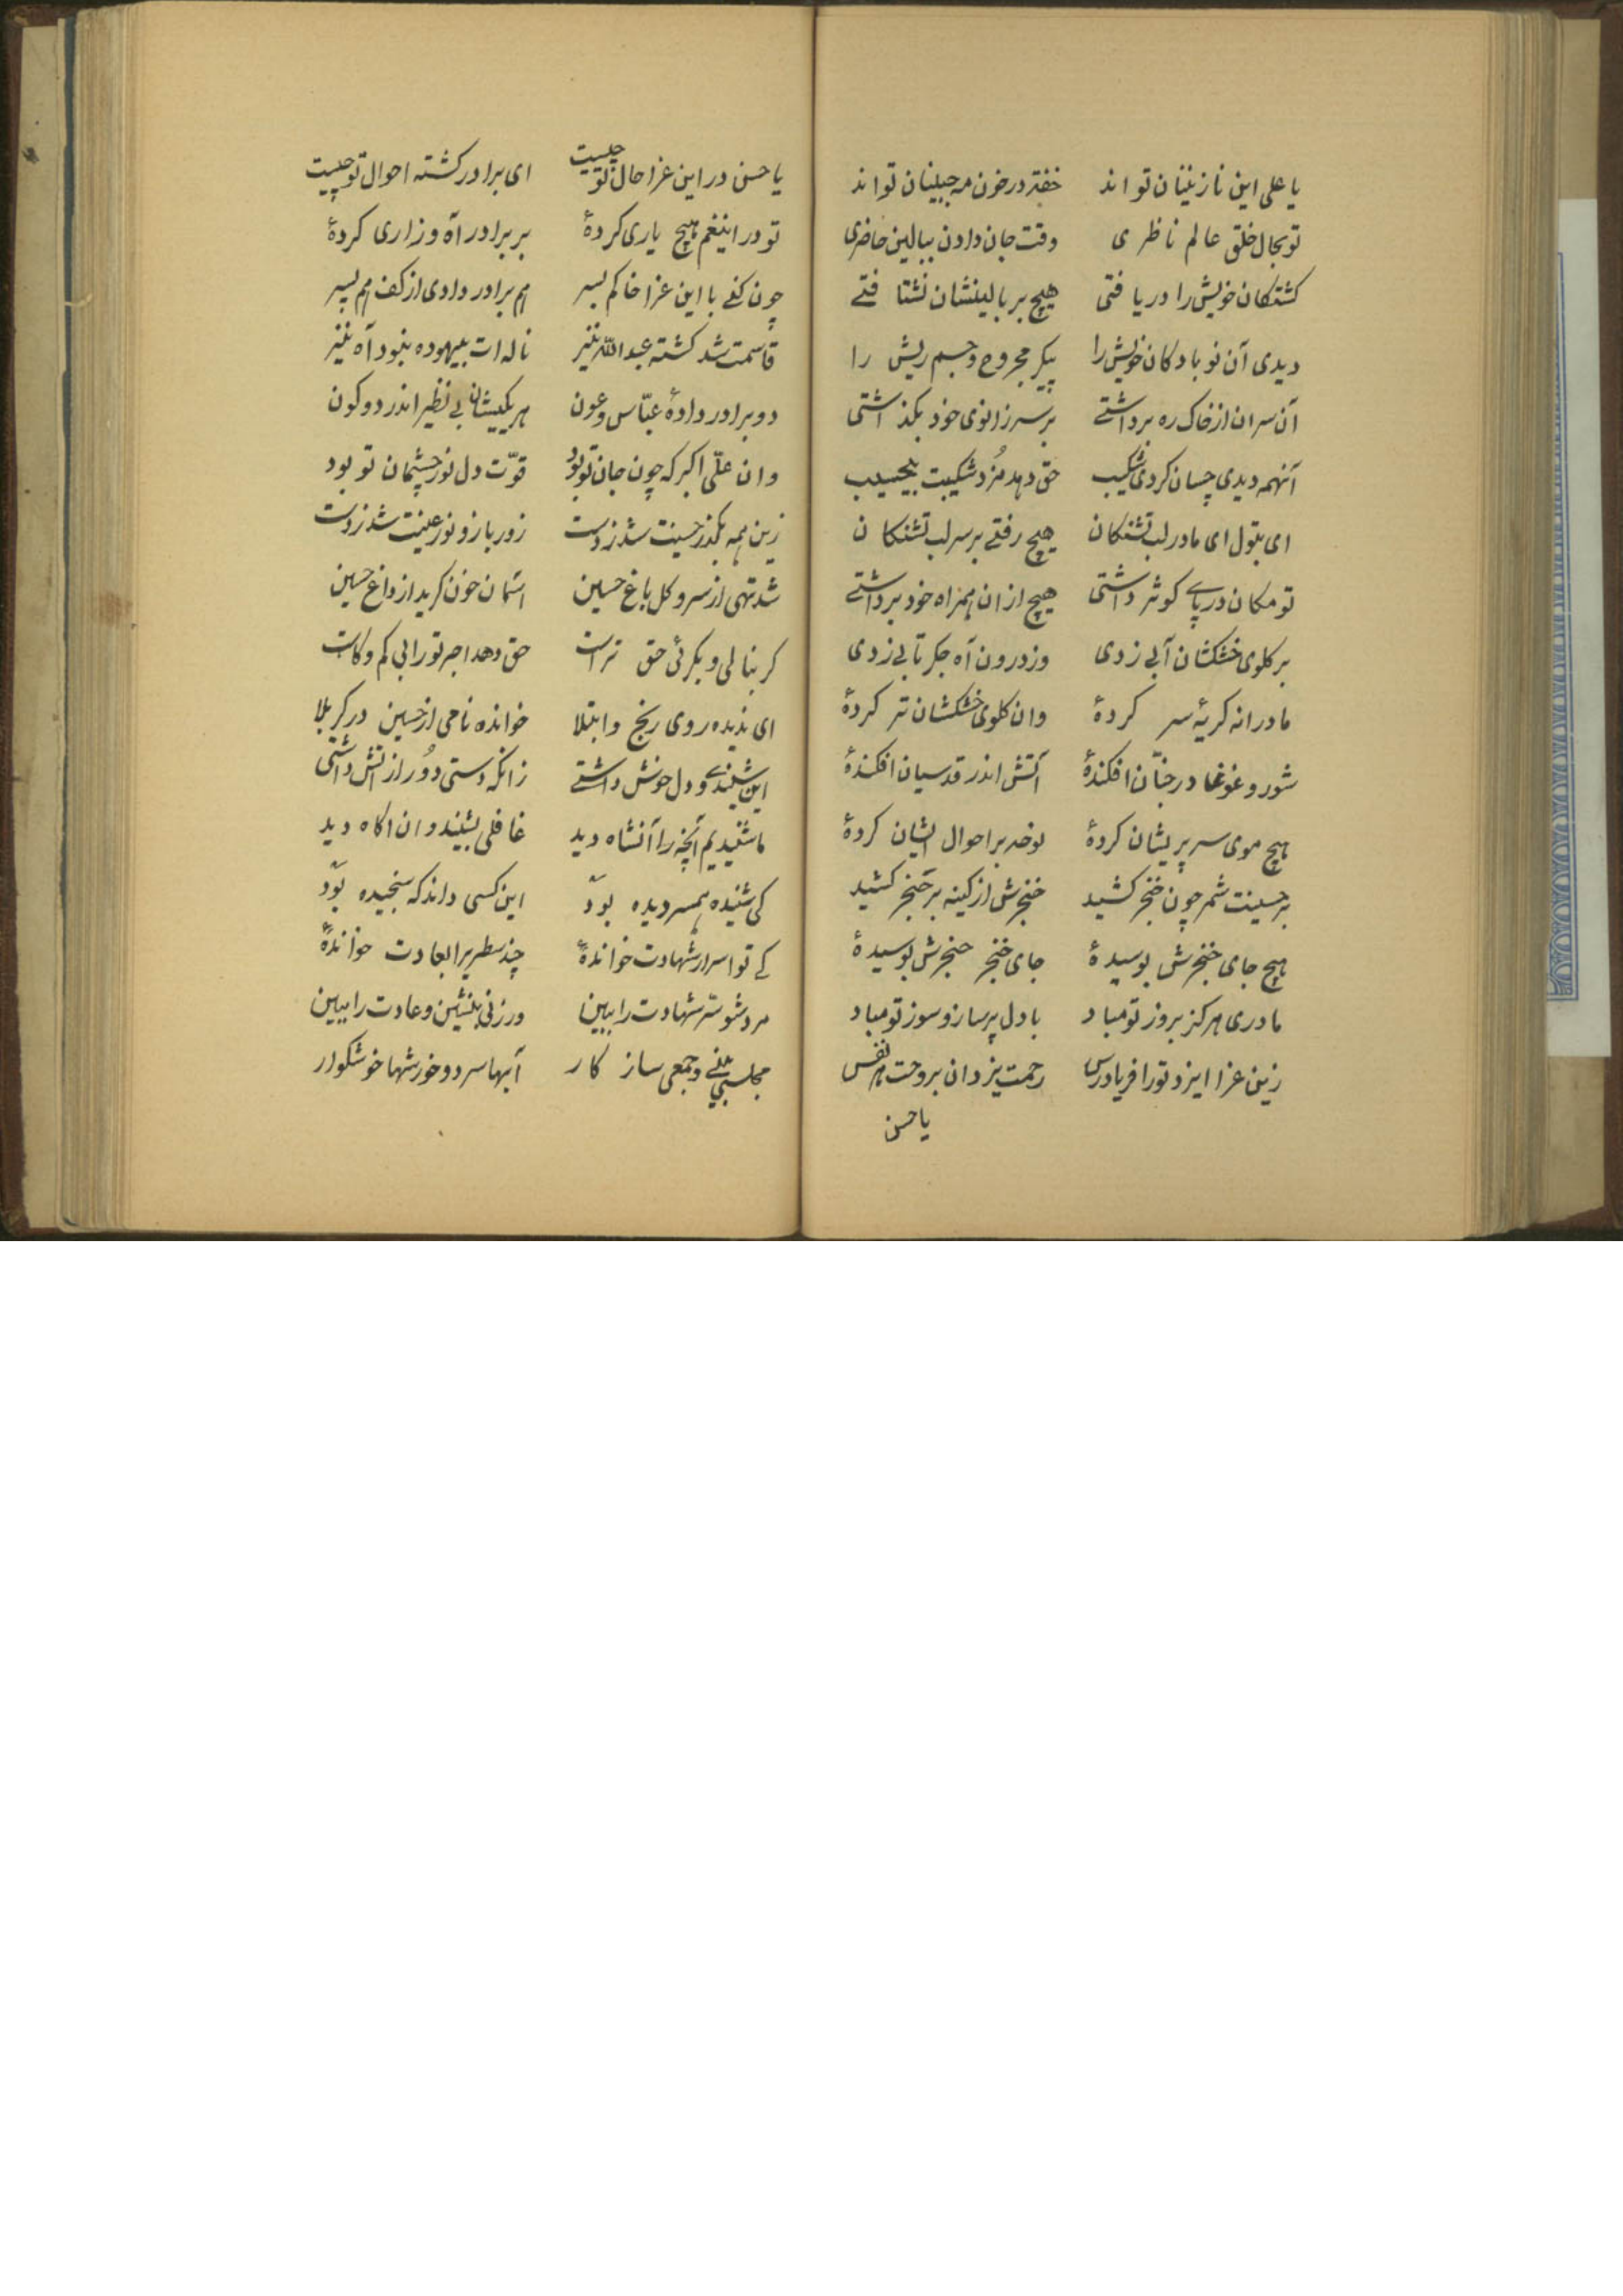 یا علی این نازنینان تو اند خفته در خون مه جبینان تو اند
تو بحال خلق عالم ناظری وقت جان دادن ببالین حاضری
کشتکان خویش را دریافتی هیچ بر بالینشان بشتافتے
دیدی آن نوبادکان خویش را پیکر مجروح و جسم ریش را
آن سران از خاک ره برداشتے بر سر زانوی خود بکذاشتی
آنهمه دیدی چسان کردی شکیب حق دهد مُزد شکیبت بیحسیب
ای بتول ای مادر لب تشنکان هیچ رفتے بر سر لب تشنکان
تو مکان در پاے کوثر داشتی هیچ از ان همراه خود برداشتے
بر کلوی خشکشان آبی زدی وز درون آه جکر تابی زدی
مادرانه کریهٔ سر کردهٔ وان کلوی خشکشان تر کردهٔ
شور و غوغا در جنّان افکندهٔ آتش اندر قدسیان افکندهٔ
هیچ موی سر پریشان کردهٔ نوحه بر احوال ایشان کردهٔ
بر حسینت شمر چون خنجر کشید خنجرش از کینه بر حنجر کشید
هیچ جای خنجرش بوسیدهٔ جای خنجر حنجرش بوسیدهٔ
مادری هرکز بروز تو مباد با دل پر ساز و سوز تو مباد
زین عزا ایزد تو را فریادرس رحمت یزدان بروحت هر نفس
یا حسن
یا حسن در این عزا حال تو چیست ای برادر کشته احوال تو چیست
تو در اینغم هیچ یاری کردهٔ بر برادر آه و زاری کردهٔ
چون کنے با این عزا خاکم بسر هم برادر دادی از کف هم پسر
قاسمت شد کشته عبدالله نیز ناله ات بیهوده نبود آه نیز
دو برادر دادهٔ عبّاس و عون هر یکیشان بی نظیر اندر دو کون
وان علّی اکبر که چون جان تو بود قوّت دل نور چشمان تو بود
زین همه بکذر حسینت شد ز دست زور بازو نور عینت شد ز دست
شد تهی از سرو و کل باغ حسین اسمان خون کرید از داغ حسین
کر بنالی و بکرئی حق تراست حق دهد اجر تو را بی کم و کاست
ای ندیده روی رنج و ابتلا خوانده نامی از حسین در کربلا
این شنیدے و دل خوش داشتے زانکه دستی دُور از اتش داشتی
ما شنیدیم آنچه را آنشاه دید غافلی بشنید و ان اکاه دید
کی شنیده همسر دیده بوَد این کسی داند که سنجیده بوَد
کے تو اسرار شهادت خواندهٔ چند سطری را بعادت خواندهٔ
مرد شو سرّ شهادت را ببین ور زنی بنشین و عادت را ببین
مجلسی و جمعی سازکار آبها سرد و خورشها خوشکوار